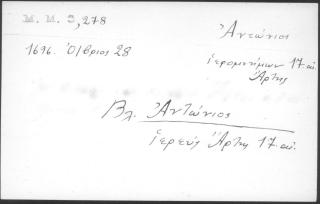 M. M. 3, 278
Ἀντώνιος
1696. Ὀ/βριος 28
ἱερομονήμων 17 αἰ.
Ἄρτης
Βλ. Ἀντώνιος
ἱερεύς Ἄρτης 17 αἰ.